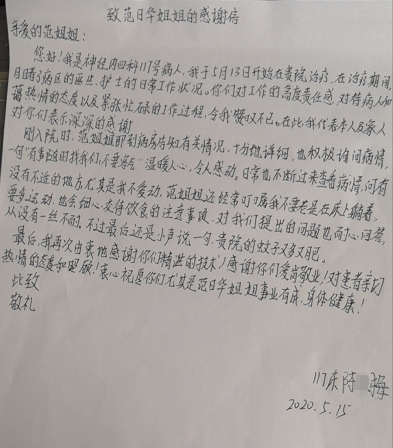 致范日华姐姐的感谢信
亲爱的范姐姐：
您好！我是神经内四科117号病人，我于5月13日开始在贵院治疗，在治疗期间，
目睹了病区的医生、护士的日常工作状况。你们对工作的高度责任感，对待病人和
蔼热情的态度以及紧张忙碌的工作过程，令我赞叹不已。在此我代表本人及家人
对你们表示深深的感谢
刚入院时，范姐姐即到病房告知有关情况，十分地详细，也积极询问病情，
一句“有事随时找我们，不要客气”温暖人心，令人感动，日常也不断过来查看病情，问有
没有不适的地方尤其是我不爱动，范姐姐还经常叮嘱我不要老是在床上躺着，
要多运动，也会细心交待饮食的注意事项，对我们提出的问题也耐心回答，
从没有一丝不耐，不过最后还是小声说一句，贵院的蚊子又多又肥。
最后，我再次由衷地感谢你们精湛的技术！感谢你们爱岗敬业！对患者亲切
热情的态度和照顾！衷心祝愿你们尤其是范日华姐姐事业有成，身体健康！
此致
敬礼
117床 陈 梅
2020.5.15